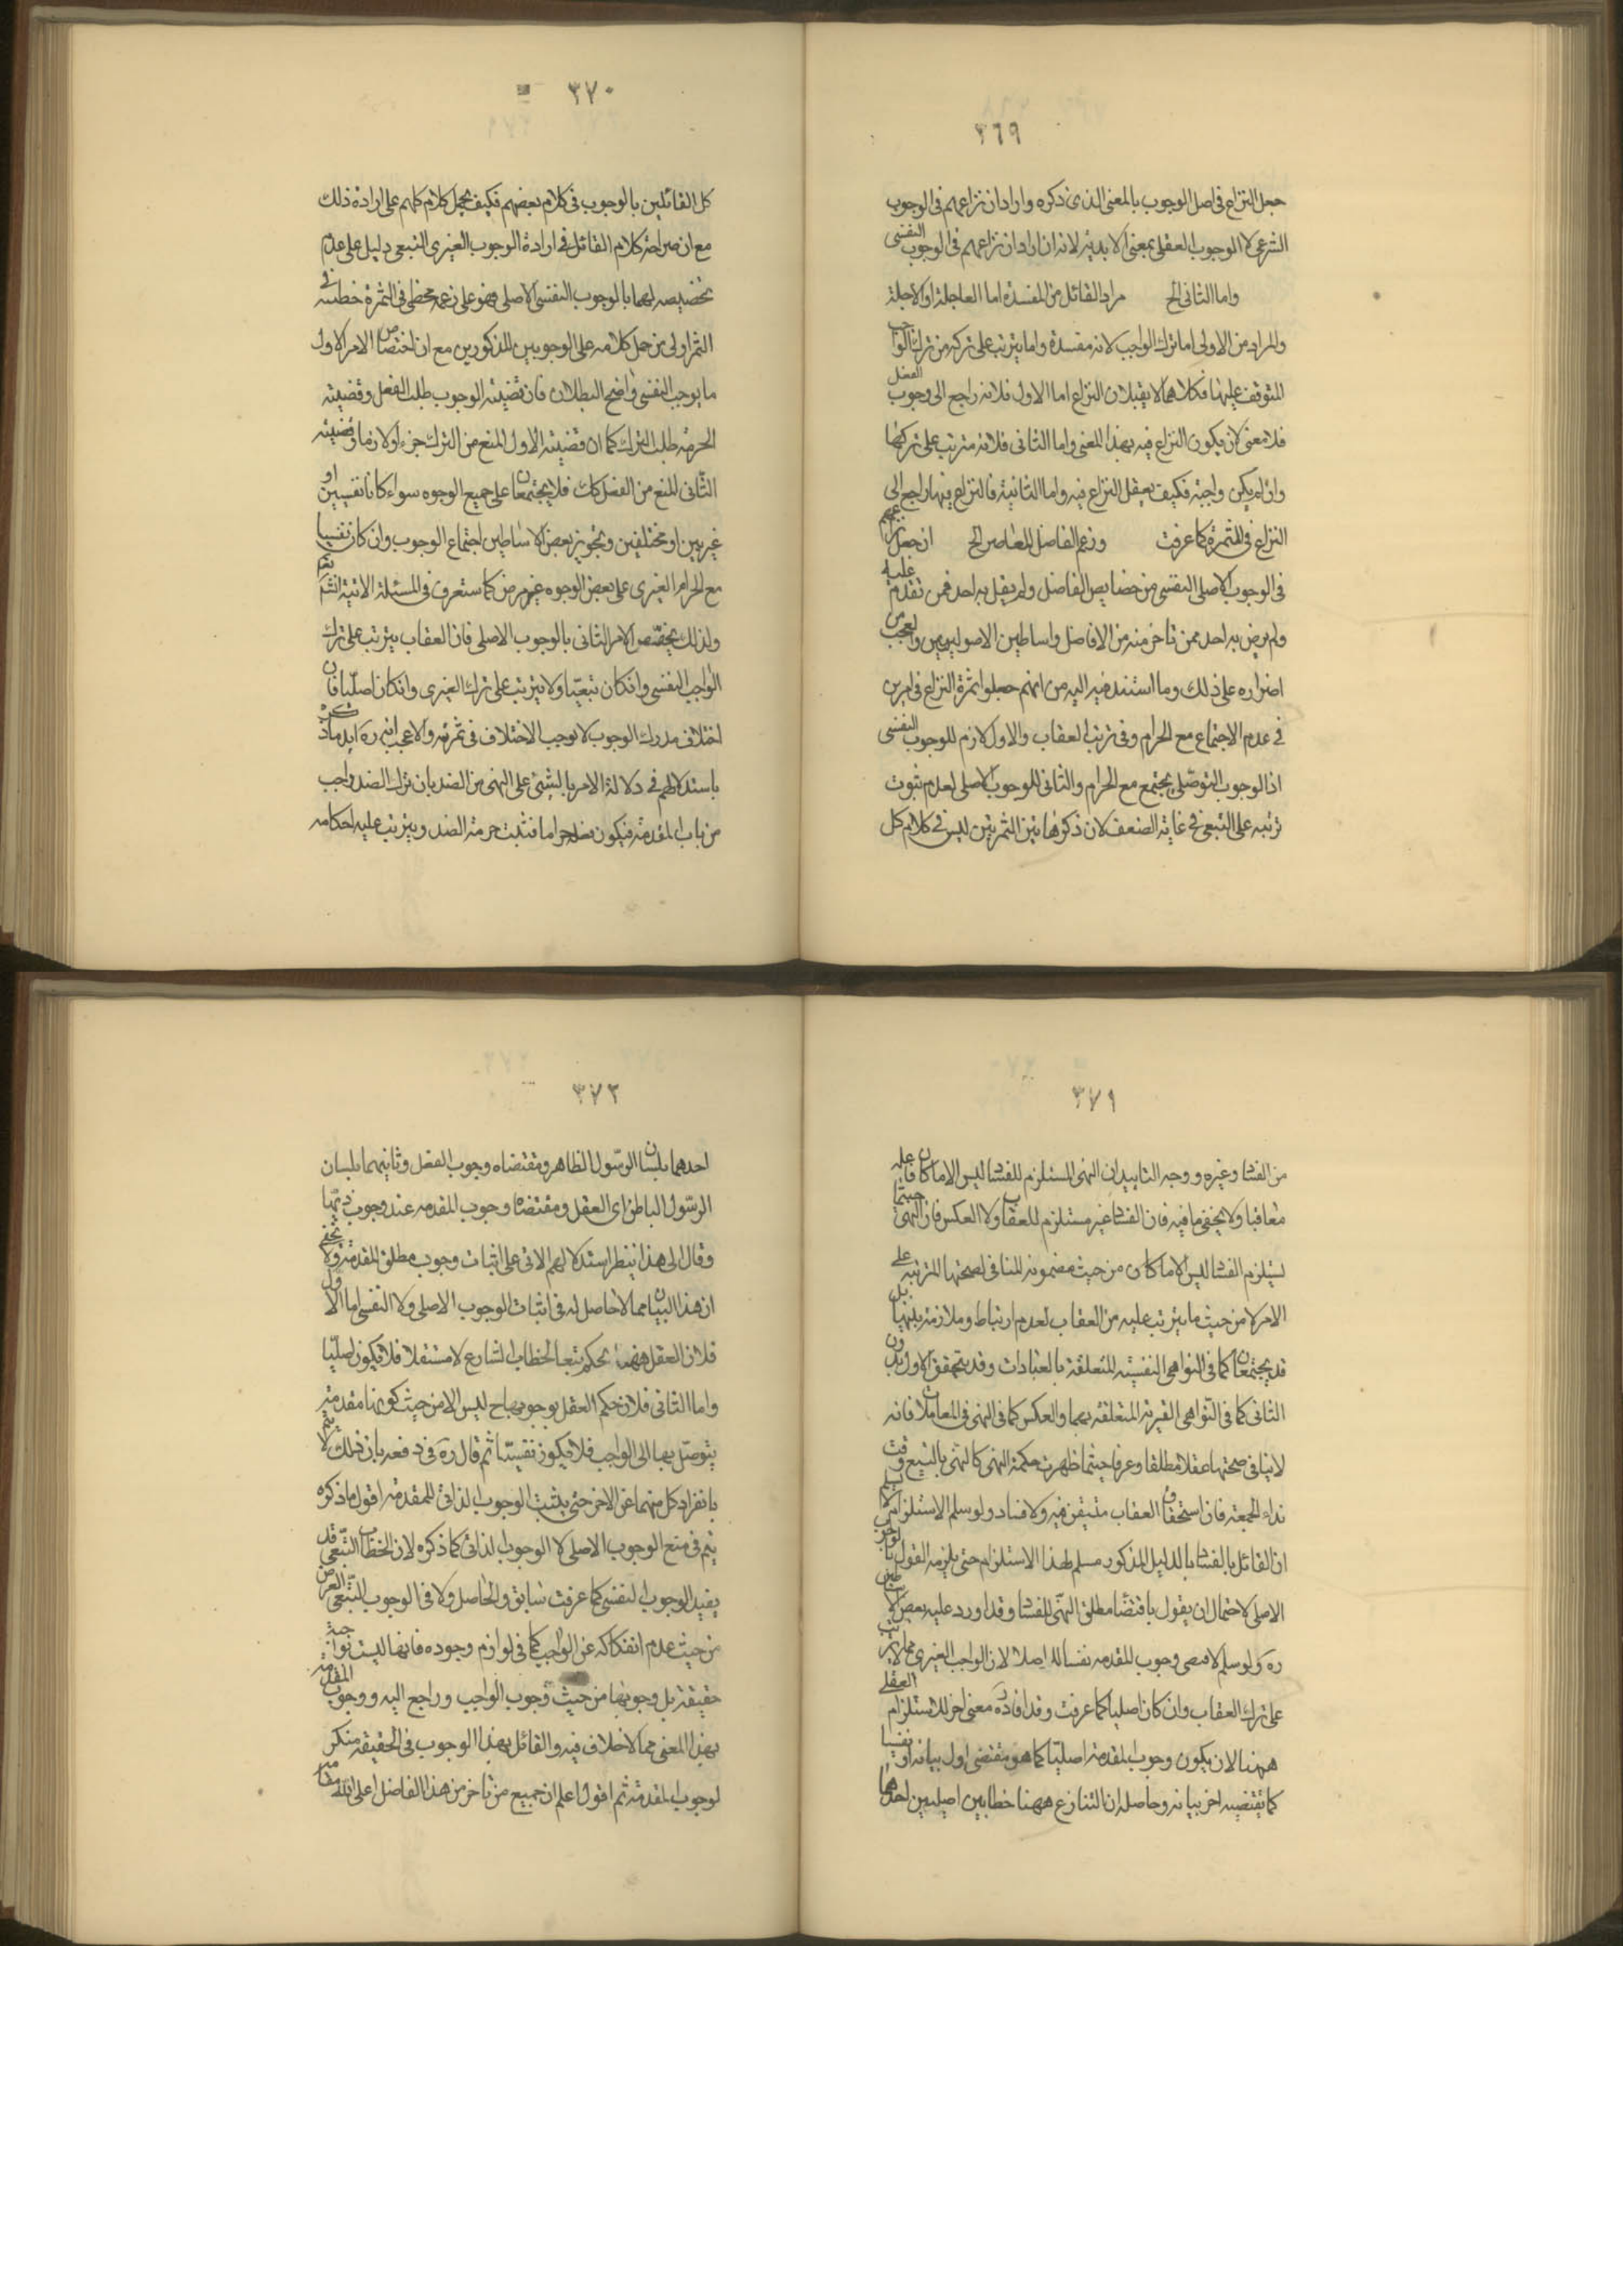 ٣٦٩
جعل النزاع فى اصل الوجوب بالمعنى الذى ذكره واراد ان نزاعهم فى الوجوب
الشرعى لا الوجوب العقلى بمعنى الابدية لانه ان اراد ان نزاعهم فى الوجوب النفسى
واما الثانى الخ مراد القائل من المفسدة اما العاجلة او الاجلة
والمراد من الاولى اما ترك الواجب لانه مفسدة واما يترتب على تركه من ترك الواجب
المتوقف عليها فكلاهما لا يقبلان النزاع اما الاول فلانه راجع الى وجوب الفعل
فلا معنى لان يكون النزاع فيه بهذا المعنى واما الثانى فلانه مترتب على تركها
وان لم يكن واجبة فكيف يعقل النزاع فيه واما الثانية فالنزاع فيها راجع الى
النزاع فى الثمرة كما عرفت وزعم الفاضل المعاصر الخ ان جعل نزاعهم
فى الوجوب الاصلى النفسى من خصايص الفاضل ولم يقل به احد فمن تقدم عليه
ولم يرض به احد ممن تاخر منه من الافاضل واساطين الاصوليين والعجب من
اصراره على ذلك وما استند فيه اليه من انهم جعلوا ثمرة النزاع فى امرين
فى عدم الاجتماع مع الحرام وفى ترتب العقاب والاول لازم للوجوب النفسى
اذ الوجوب التوصلى يجتمع مع الحرام والثانى للوجوب الاصلى لعدم ثبوت
ترتبه على التبعى فى غاية الضعف لان ذكر هاتين الثمرتين ليس فى كلام كل
٣٧٠
كل القائلين بالوجوب فى كلام بعضهم فكيف يحمل كلام كلهم على ارادة ذلك
مع ان صراحة كلام القائل فى ارادة الوجوب الغيرى التبعى دليل على عدم
تخصيصه لهما بالوجوب النفسى الاصلى فهو على زعمه مخطى فى الثمرة خطئه فى
الثمر اولى من حمل كلامه على الوجوبين المذكورين مع ان اختصاص الامر الاول
ما يوجب النفسى واضح البطلان فان قضية الوجوب طلب الفعل وقضية
الحرمة طلب الترك كما ان قضية الاول المنع من الترك جزء او لازما وقضية
الثانى المنع من الفعل كك فلا يجتمعان على جميع الوجوه سواء كانا نفسيين او
غيريين او مختلفين وتجويز بعض الاساطين اجتماع الوجوب وان كان نفسيا
مع الحرام الغيرى على بعض الوجوه غير مرض كما ستعرف فى المسئلة الاتية انشاء الله تعم
ولذلك يختص الامر الثانى بالوجوب الاصلى فان العقاب يترتب على ترك
الواجب النفسى وانكان تبعيا ولا يترتب على ترك الغيرى وانكان اصليا فان
اختلاف مدرك الوجوب لا يوجب الاختلاف فى ثمرته والاعجب انه ره ايد ما ذكره
باستدلالهم فى دلالة الامر بالشئ على النهى من الضد بان ترك الضد واجب
من باب المقدمة فيكون فعله حراما فتثبت حرمة الضد ويترتب عليه احكامه
٣٧١
من الفسا وغيره ووجه التاييد ان النهى المستلزم للفسا ليس الا ما كان فاعله
معاقبا ولا يخفى ما فيه فان الفسا غير مستلزم للعقاب ولا العكس فان النهى حيثما
يستلزم الفسا ليس الا ما كان من حيث مضمونه المنافى لصحتها المترتبة على
الامر لا من حيث ما يترتب عليه من العقاب لعدم ارتباط وملازمة بينهما بل
قد يجتمعان كما فى النواهى النفسية المتعلقة بالعبادات وقد يتحقق الاول بدون
الثانى كما فى النواهى الغيرية المتعلقة بهما والعكس كما فى النهى فى المعاملات فانه
لا ينافى صحتها عقلا مطلقا وعرفا حيثما ظهرت حكمة النهى كالنهى بالبيع وقت
نداء الجمعة فان استحقاق العقاب متيقن فيه ولا فساد ولو سلم الاستلزام لا يلزم
ان القائل بالفسا بالدليل المذكور مسلم لهذا الاستلزام حتى يلزمه القول بالوجوب
الاصلى لاحتمال ان يقول باقتضا مطلق النهى للفسا وقد اورد عليه بعض الاساطين
ره ولو سلم لا معنى وجوب المقدمة نفسا له اصلا لان الواجب الغيرى مما لا يترتب
على ترك العقاب وان كان اصليا كما عرفت وقد افاد ره معنى اخر للاستلزام العقلى
ههنا لان يكون وجوب المقدمة اصليا كما هو مقتضى اول بيانه او نفسيا
كما يقتضيه اخر بيانه وحاصله ان التنازع ههنا خطابين اصليين احدهما
٣٧٢
احدهما بلسان الرسول الظاهر ومقتضاه وجوب الفعل وثانيهما بلسان
الرسول الباطن اى العقل ومقتضاه وجوب المقدمه عند وجوب ذيها
وقال الى هذا ينظر استدلالهم الاتى على اثبات وجوب مطلق المقدمة ولا يخفى
ان هذا البيان مما لا حاصل له فى اثبات الوجوب الاصلى ولا النفسى اما الاول
فلان العقل ههنا يحكم تبعا لخطاب الشارع لا مستقلا فلا يكون اصليا
واما الثانى فلان حكم العقل بوجوب مباح ليس الا من حيث كونها مقدمة
يتوصل بها الى الواجب فلا يكون نفسيا ثم قال ره فى دفعه بان ذلك لا يتم
بانفراد كل منهما عن الاخر حتى يثبت الوجوب الذاتى للمقدمه اقول ما ذكره
يتم فى منع الوجوب الاصلى لا الوجوب الذاتى كما ذكره لان الخطاب التبعى قد
يفيد الوجوب النفسى كما عرفت سابق والحاصل ولا فى الوجوب التبعى العرضى
من حيث عدم انفكاكه عن الواجب كما فى لوازم وجوده فانها ليست بواجبة
حقيقة بل وجوبها من حيث وجوب الواجب وراجع اليه ووجوب المقدمة
بهذا المعنى مما لا خلاف فيه والقائل بهذا الوجوب فى الحقيقة منكر
لوجوب المقدمة ثم اقول اعلم ان جميع من تاخر من هذا الفاضل اعلى الله مقامه